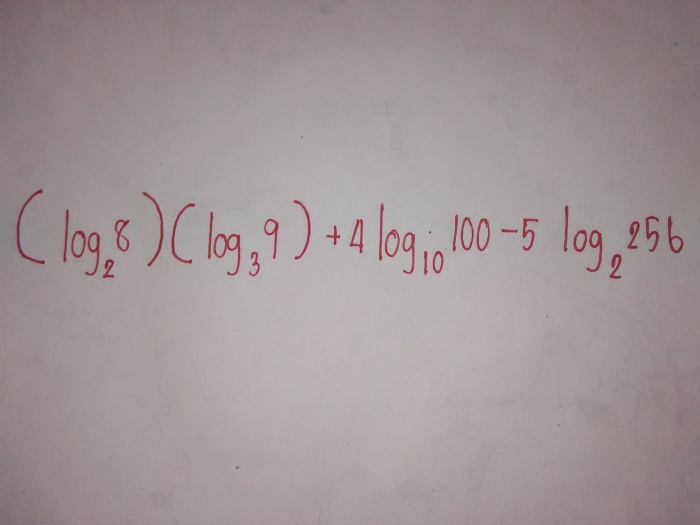 (log₂8)(log₃9)+4log₁₀100-5 log₂256